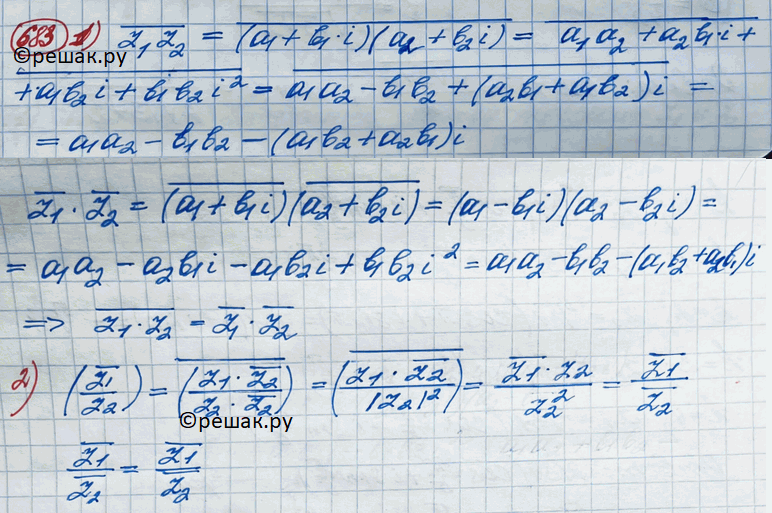 683 1) \overline{z_1 z_2} = \overline{(a_1 + b_1 \cdot i)(a_2 + b_2 i)} = \overline{a_1 a_2 + a_2 b_1 \cdot i +}
©решак.ру
\overline{+ a_1 b_2 i + b_1 b_2 i^2} = \overline{a_1 a_2 - b_1 b_2 + (a_2 b_1 + a_1 b_2) i} =
= a_1 a_2 - b_1 b_2 - (a_1 b_2 + a_2 b_1) i
\overline{z_1} \cdot \overline{z_2} = \overline{(a_1 + b_1 i)} \overline{(a_2 + b_2 i)} = (a_1 - b_1 i)(a_2 - b_2 i) =
= a_1 a_2 - a_2 b_1 i - a_1 b_2 i + b_1 b_2 i^2 = a_1 a_2 - b_1 b_2 - (a_1 b_2 + a_2 b_1) i
=> \overline{z_1 \cdot z_2} = \overline{z_1} \cdot \overline{z_2}
2) (\frac{\overline{z_1}}{z_2}) = \overline{(\frac{z_1 \cdot \overline{z_2}}{z_2 \cdot \overline{z_2}})} = \overline{(\frac{z_1 \cdot \overline{z_2}}{|z_2|^2})} = \frac{\overline{z_1} \cdot z_2}{z_2^2} = \frac{\overline{z_1}}{\overline{z_2}}
©решак.ру
\frac{\overline{z_1}}{\overline{z_2}} = \frac{\overline{z_1}}{\overline{z_2}}